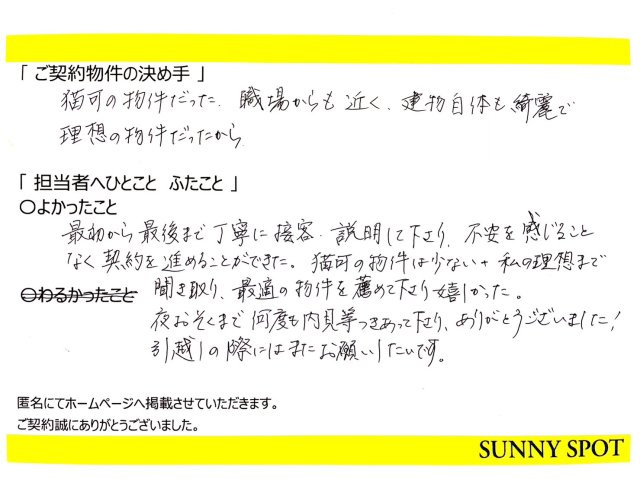 「 ご契約物件の決め手 」
猫可の物件だった、職場からも近く、建物自体も綺麗で
理想の物件だったから
「 担当者へひとこと ふたこと 」
○よかったこと
最初から最後まで丁寧に接客・説明して下さり、不安を感じること
なく契約を進めることができた。猫可の物件は少ない+私の理想まで
○わるかったこと 聞き取り、最適の物件を薦めて下さり嬉しかった。
夜おそくまで何度も内見等つきあって下さり、ありがとうございました!
引越しの際にはまたお願いしたいです。
匿名にてホームページへ掲載させていただきます。
ご契約誠にありがとうございました。
SUNNY SPOT